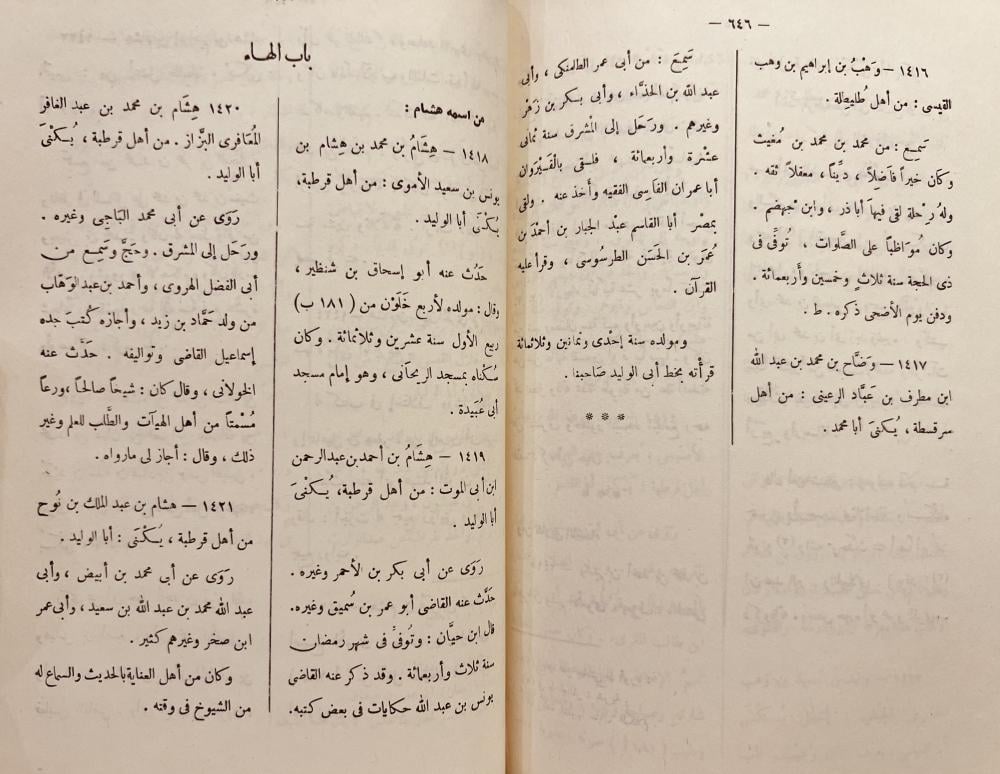 — ٦٤٦ —
١٤١٦ — وَهْبُ بن إبراهيم بن وهب
القيسى : من أهل طليطلة .
سَمِعَ : من محمد بن محمد بن مُغيث
وكان خيراً فَاضِلاً ، ديِّناً ، معقلاً ثقه .
ولهُ رِحْلة لقى فيها أبا ذر ، وابن جهضم .
وكان مُوَاظباً على الصَّلوات ، تُوفِّى فى
ذى الحجة سنة ثلاث وخمسين وأربعمائة .
ودفن يوم الأضحى ذكره . ط .
١٤١٧ — وَضَّاح بن محمد بن عبد الله
ابن مطرف بن عَبَّاد الرعينى : من أهل
سرقسطة ، يُسكنى أبا محمد .
سَمِعَ : من أبى عمر الطلمنكى ، وأبى
عبد الله بن الحذَّاء ، وأبى بكر بن زَهْر
وغيرهم . ورَحَل إلى المْشرق سنة ثمانى
عشْرة وأربعمائة ، فلقى بالْقَيْرَوَان
أبا عمران الفَاسِى الفقيه وأخذ عنه . ولقى
بمصْر أبا القاسم عبْد الجبار بن أحمَد بن
عُمَر بن الحَسَن الطرسُوسى ، وقرأ عليه
القرآن .
ومولده سنة إحْدى وثمانين وثلاثمائة
قرأْته بخط أبى الوليد صَاحبنا .
* * *
باب الهاء
من اسمه هشام :
١٤١٨ — هِشَامُ بن محمد بن هِشَام بن
يونس بن سعيد الأموى : من أهل قرطبة،
يُكْنَى أبا الوليد .
حَدَّث عنه أبو إسحاق بن شنظير ،
وقال : مولده لأربع خَلَوْن من ( ١٨١ ب )
ربيع الأول سنة عشرين وثلاثمائة . وكان
سُكناه بمسجد الريحاَنى ، وهو إمام مسجد
أبى عُبَيدة .
١٤١٩ — هِشَامُ بن أحمد بن عبد الرحمن
ابن أبى الموت : من أهل قرطبة، يُكْنَى
أبا الوليد .
رَوَى عن أبى بكر بن الأحمر وغيره .
حَدَّث عنه القاضى أبو عمر بن سُميق وغيره.
قال ابن حيَّان : وتُوفِّى فى شهر رمضان
سنة ثلاث وأربعمائة . وقد ذكر عنه القاضى
يونس بن عبد الله حكايات فى بعض كتبه.
١٤٢٠ هِشَام بن محمد بن عبد الغافر
المُعَافرى البزَّاز . من أهل قرطبة ، يُسكْنَى
أبا الوليد .
رَوَى عن أبى محمد البَاجى وغيره .
ورَحَل إلى المشرق . وحَجَّ وسَمِع من
أبى الفضل الهروى ، وأحمد بن عبد الوَهَّاب
من ولد حَمَّاد بن زيد ، وأجازه كُتبَ جده
إسماعيل القاضى وتواليفه . حَدَّث عنه
الخولانى ، وقال كان : شيخاً صالحاً ،ورعاً
مُسْمتاً من أهل الهيآت والطَّلب للعلم وغير
ذلك ، وقال : أجاز لى مارواه .
١٤٢١ — هشام بن عبد الملك بن نُوح
من أهل قرطبة ، يَكْنَى : أبا الوليد .
رَوَى عن أبى محمد بن أبيض ، وأبى
عبد الله محمد بن عبد الله بن سعيد ، وأبى عمر
ابن صخر وغيرهم كثير .
وكان من أهل العناية بالحديث والسماع له
من الشيوخ فى وقته .